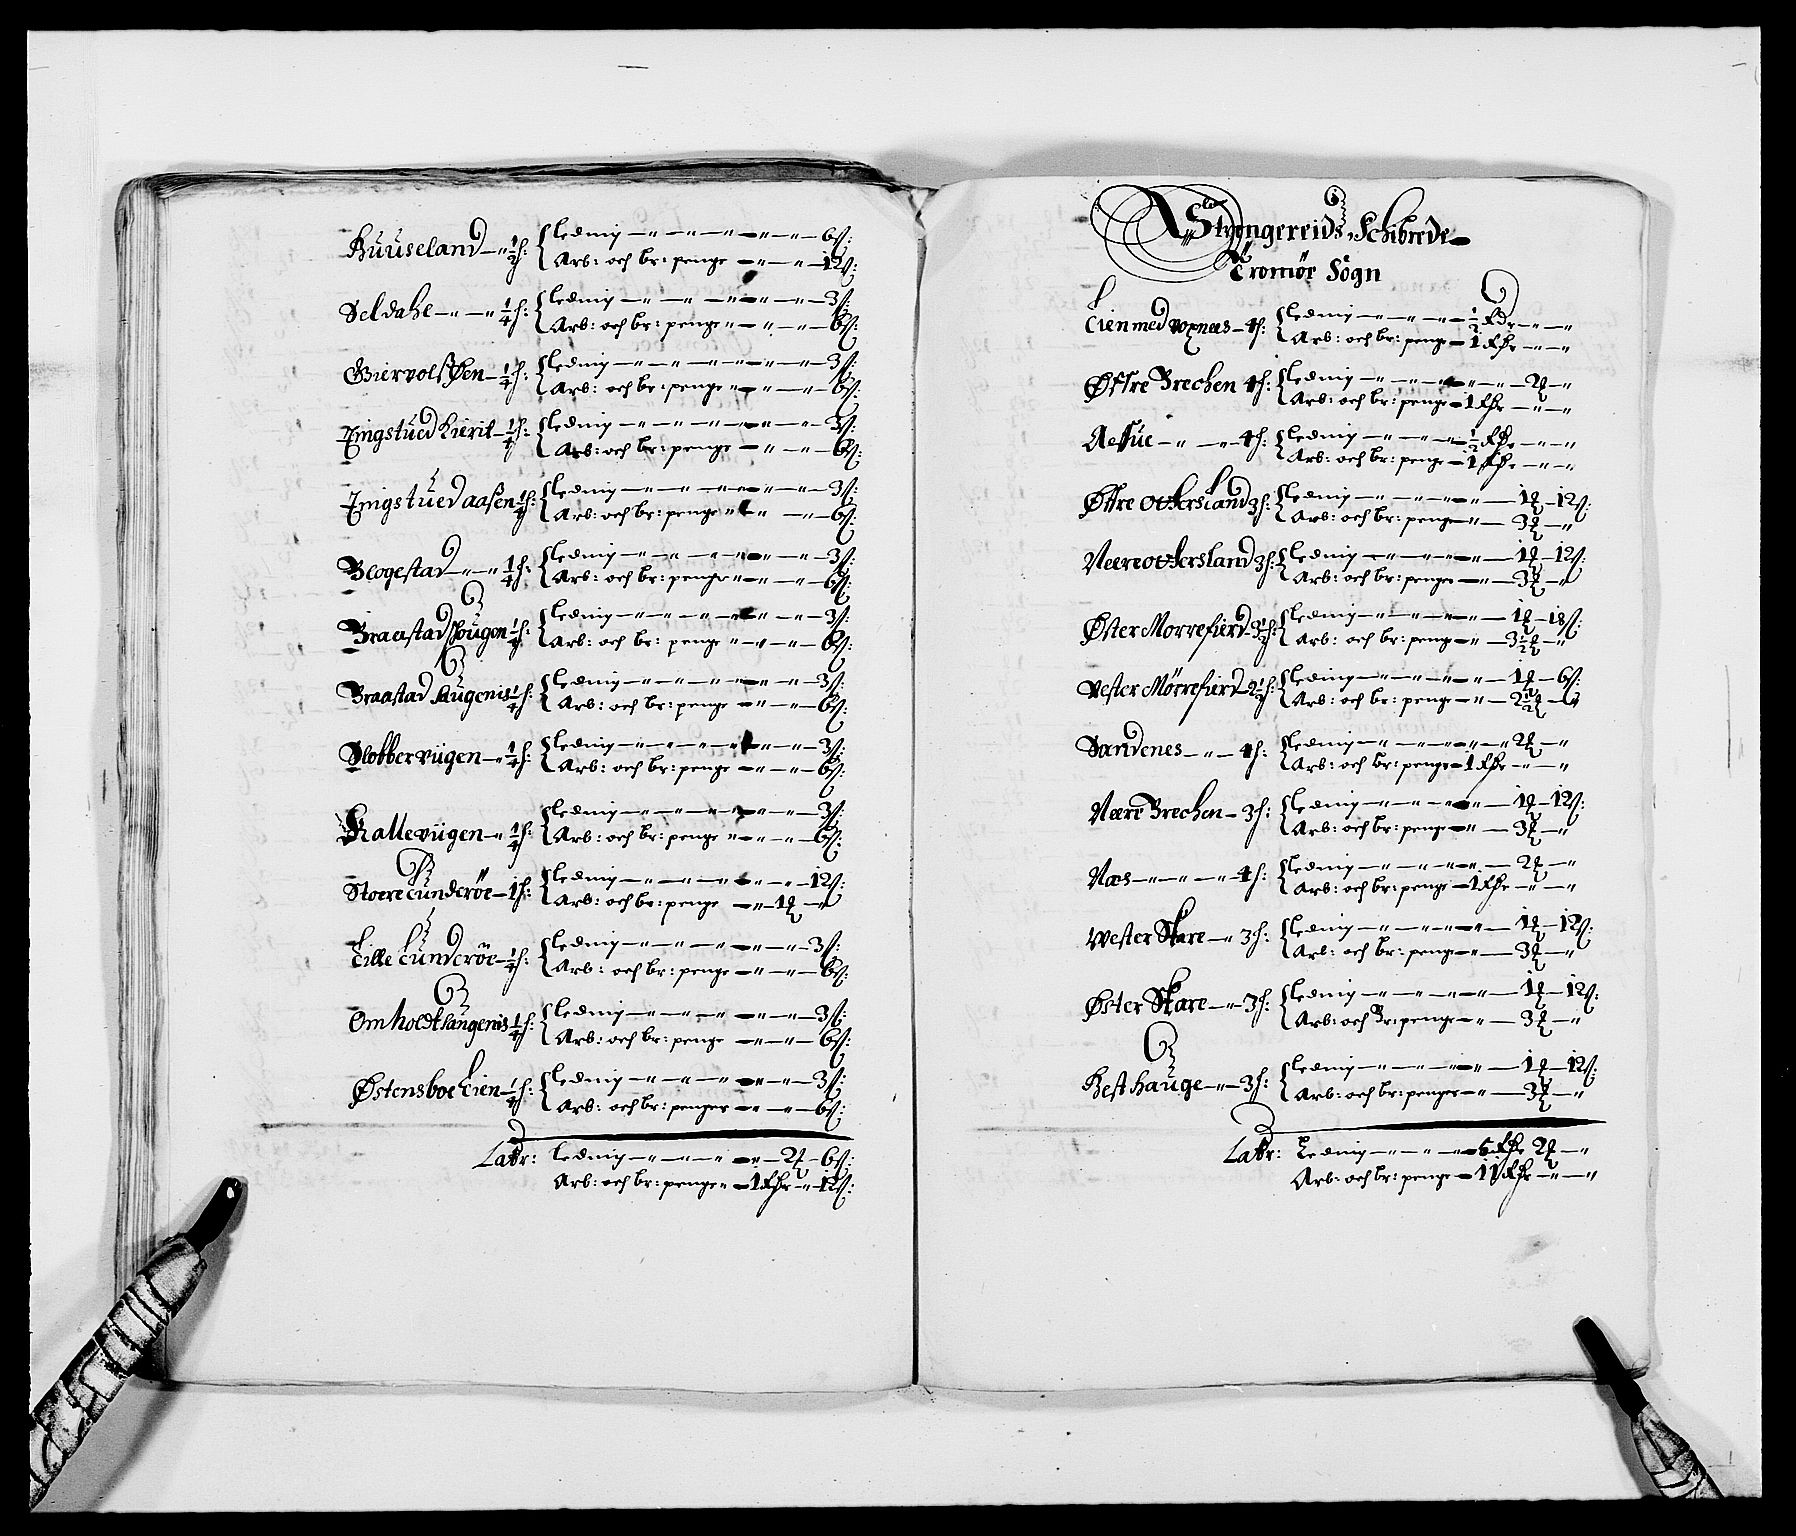 Huuseland – „ ½ h: Leding – „ – „ – „ – „ – 6 ß:
Arb: och br: penge – „ – „ – 12 ß:
Seldahl – „ – „ ¼ h: Leding – „ – „ – „ – „ – 3 ß:
Arb: och br: penge „ – „ – „ – 6 ß:
Giervolßøen – ¼ h: Leding – „ – „ – „ – „ – 3 ß:
Arb: och br: penge „ – „ – „ – 6 ß:
Jngstued Kierit – ¼ h: Leding – „ – „ – „ – „ – 3 ß:
Arb: och br: penge – „ – „ – 6 ß:
Jngstued aaßen ¼ h: Leding – „ – „ – „ – „ – 3 ß:
Arb: och br: penge „ – „ – „ – 6 ß:
Blogestad – „ – „ ¼ h: Leding – „ – „ – „ – „ – 3 ß:
Arb: och br: penge „ – „ – „ – 6 ß:
Braastad Hougen ¼ h: Leding – „ – „ – „ – „ – 3 ß:
Arb: och br: penge „ – „ – „ – 6 ß:
Braastad Haugenis ¼ h: Leding – „ – „ – „ – „ – 3 ß:
Arb: och br: penge – „ – „ – 6 ß:
Slobbervügen – „ ¼ h: Leding – „ – „ – „ – „ – 3 ß:
Arb: och br: penge – „ – „ – 6 ß:
Kallevügen – „ ¼ h: Leding – „ – „ – „ – „ – 3 ß:
Arb: och br: penge „ – „ – „ – 6 ß:
Stoere Lunderöe – 1 h: Leding – „ – „ – „ – „ – 12 ß:
Arb: och br: penge – „ – 1 ℥ – „
Lille Lunderöe – ¼ h: Leding – „ – „ – „ – „ – 3 ß:
Arb: och br: penge – „ – „ – 6 ß:
Omholdt Langenis ¼ h: Leding – „ – „ – „ – „ – 3 ß:
Arb: och br: penge – „ – „ – 6 ß:
Østensboe Lien – ¼ h: Leding – „ – „ – „ – „ – 3 ß:
Arb: och br: penge – „ – „ – 6 ß:
Latr: Leding – „ – „ – „ – „ – 2 ℥ – 6 ß:
Arb: och br: penge „ – 1 Rdr – „ – 12 ß:
Strengereids Schibrede
Tromöe Sogn
Lien med Voxnæs – 4 h: Leding – „ – „ – „ – ½ Rdr – „ – „
Arb: och br: penge – 1 Rdr – „ – „
Østre Brechen 4 h: Leding – „ – „ – „ – „ – 2 ℥ – „
Arb: och br: penge – 1 Rdr – „ – „
Aessue – „ – „ – 4 h: Leding – „ – „ – „ – ½ Rdr – „ – „
Arb: och br: penge – 1 Rdr – „ – „
Østre Ottersland 3 h: Leding – „ – „ – „ – „ – 1 ℥ – 12 ß:
Arb: och br: penge – „ – 3 ℥ – „
Neere Ottersland 3 h: Leding – „ – „ – „ – „ – 1 ℥ – 12 ß:
Arb: och br: penge – „ – 3 ℥ – „
Øster Morrefierd – 3½ h: Leding – „ – „ – „ – „ – 1 ℥ – 18 ß:
Arb: och br: penge – „ – 3½ ℥ – „
Vester Mörrefierd – 2½ h: Leding – „ – „ – „ – „ – 1 ℥ – 6 ß:
Arb: och br: penge – „ – 2½ ℥ – „
Sandenes – „ – „ – 4 h: Leding – „ – „ – „ – „ – „ 2 ℥ – „
Arb: och br: penge – 1 Rdr – „ – „
Neere Brechen – 3 h: Leding – „ – „ – „ – „ – 1 ℥ – 12 ß:
Arb: och br: penge – „ – 3 ℥ – „
Næs – „ – „ – „ – 4 h: Leding – „ – „ – „ – „ – 2 ℥ – „
Arb: och br: penge – 1 Rdr – „ – „
Wester Skare – „ 3 h: Leding – „ – „ – „ – „ – 1 ℥ – 12 ß:
Arb: och br: penge – „ – 3 ℥ – „
Øster Skare – „ – 3 h: Leding – „ – „ – „ – „ – 1 ℥ – 12 ß:
Arb: och Br: penge – „ – 3 ℥ – „
Hesthauge – „ – 3 h: Leding – „ – „ – „ – „ – 1 ℥ – 12 ß:
Arb: och br: penge – „ – 3 ℥ – „
Latr: Leding – „ – „ – „ – 6 Rdr 2 ℥ – „
Arb: och br: penge – 11 Rdr – „ – „